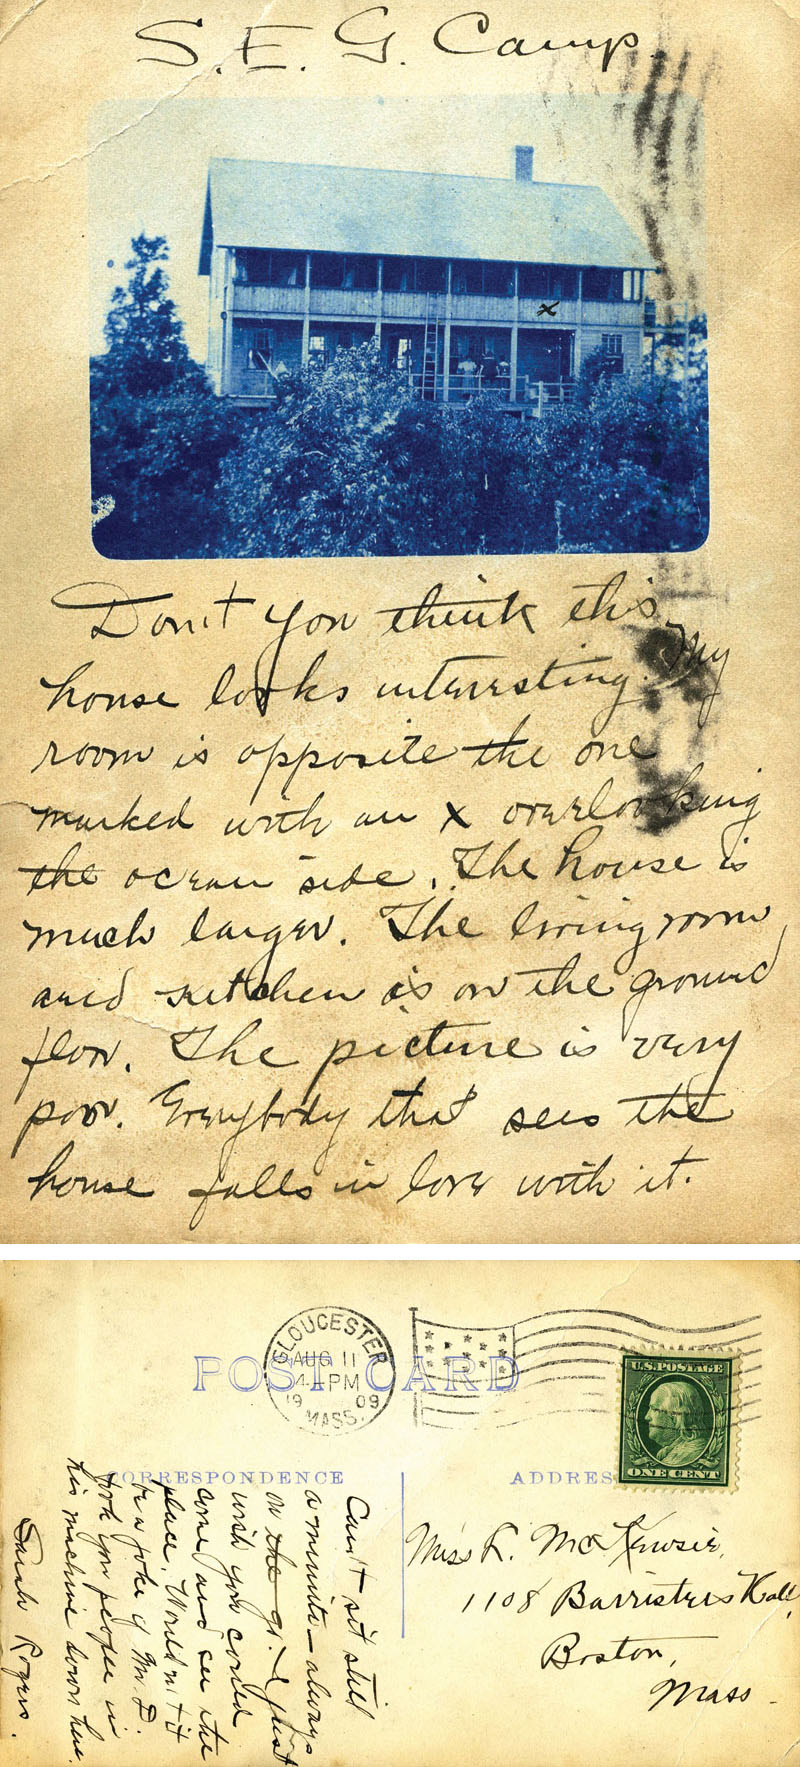 S. E. G. Camp.
X
Don't you think this
house looks interesting. My
room is opposite the one
marked with an X overlooking
the ocean side. The house is
much larger. The living room,
and kitchen is on the ground
floor. The picture is very
poor. Everybody that sees the
house falls in love with it.
GLOUCESTER
AUG 11
4-PM
1909
MASS.
POST CARD
U.S. POSTAGE
ONE CENT
CORRESPONDENCE
ADDRES
Can't sit still
a minute - always
on the go. I just
wish you could
come and see the
place. Wouldn't it
be a joke if Mr. D.
took you people in
his machine down here.
Sarah Rogers.
Miss R. McKensie,
1108 Barristers Hall,
Boston,
Mass.